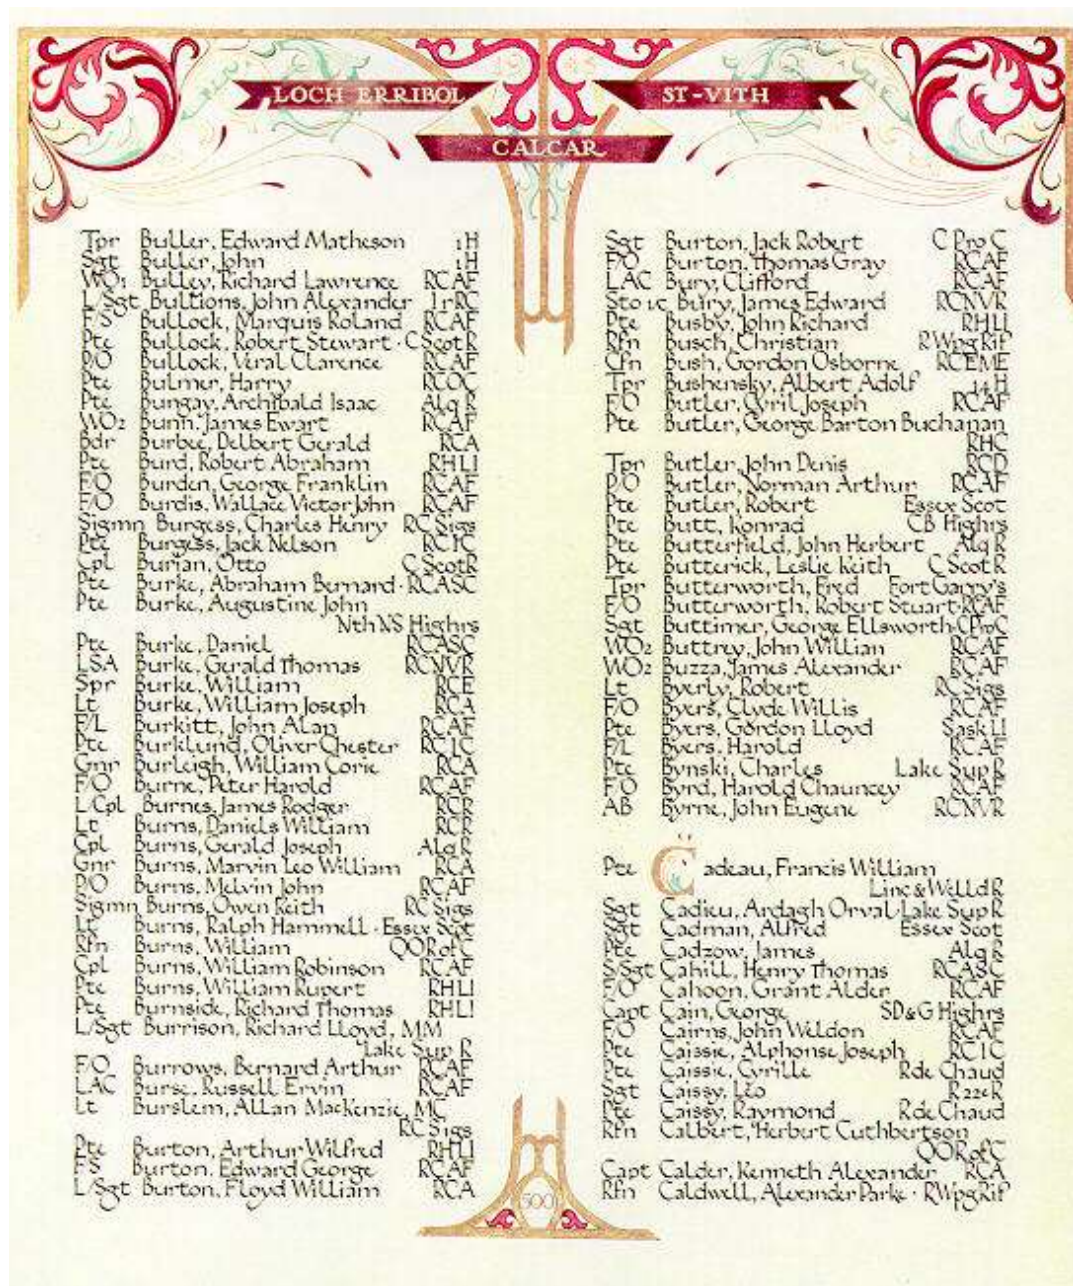 LOCH ERRIBOL
ST-VITH
CALCAR
Tpr Buller, Edward Matheson 1H
Sgt Buller, John 1H
WO1 Bulley, Richard Lawrence RCAF
L/Sgt Bullions, John Alexander 1rRC
FS Bullock, Marquis Roland RCAF
Pte Bullock, Robert Stewart · C Scot R
P/O Bullock, Veral Clarence RCAF
Pte Bulmer, Harry RCOC
Pte Bungay, Archibald Isaac Alq R
WO2 Bunn, James Ewart RCAF
Bdr Burbee, Delbert Gerald RCA
Pte Burd, Robert Abraham RHLI
F/O Burden, George Franklin RCAF
F/O Burdis, Wallace Victor John RCAF
Sigmn Burgess, Charles Henry RC Sigs
Pte Burgess, Jack Nelson RCIC
Cpl Burian, Otto C Scot R
Pte Burke, Abraham Bernard · RCASC
Pte Burke, Augustine John
Nth NS Highrs
Pte Burke, Daniel RCASC
LSA Burke, Gerald Thomas RCNVR
Spr Burke, William RCE
Lt Burke, William Joseph RCA
F/L Burkitt, John Alan RCAF
Pte Burklund, Oliver Chester RCIC
Gnr Burleigh, William Corie RCA
F/O Burne, Peter Harold RCAF
L/Cpl Burnes, James Rodger RCR
Lt Burns, Daniels William RCR
Cpl Burns, Gerald Joseph Alq R
Gnr Burns, Marvin Leo William RCA
P/O Burns, Melvin John RCAF
Sigmn Burns, Owen Keith RC Sigs
Lt Burns, Ralph Hammell · Essex Scot
Rfn Burns, William QOR of C
Cpl Burns, William Robinson RCAF
Pte Burns, William Rupert RHLI
Pte Burnside, Richard Thomas RHLI
L/Sgt Burrison, Richard Lloyd, MM
Lake Sup R
F/O Burrows, Bernard Arthur RCAF
LAC Burse, Russell Ervin RCAF
Lt Burslem, Allan MacKenzie, MC
RC Sigs
Pte Burton, Arthur Wilfred RHLI
FS Burton, Edward George RCAF
L/Sgt Burton, Floyd William RCA
Sgt Burton, Jack Robert C Pro C
F/O Burton, Thomas Gray RCAF
LAC Bury, Clifford RCAF
Sto 1c Bury, James Edward RCNVR
Pte Busby, John Richard RHLI
Rfn Busch, Christian R Wpg Rif
Cfn Bush, Gordon Osborne RCEME
Tpr Bushensky, Albert Adolf 14H
F/O Butler, Cyril Joseph RCAF
Pte Butler, George Barton Buchanan
RHC
Tpr Butler, John Denis RCD
P/O Butler, Norman Arthur RCAF
Pte Butler, Robert Essex Scot
Pte Butt, Konrad CB Highrs
Pte Butterfield, John Herbert Alq R
Pte Butterick, Leslie Keith C Scot R
Tpr Butterworth, Fred Fort Garry's
F/O Butterworth, Robert Stuart · RCAF
Sgt Buttimer, George Ellsworth · C Pro C
WO2 Buttrey, John Willian RCAF
WO2 Buzza, James Alexander RCAF
Lt Byerly, Robert RC Sigs
F/O Byers, Clyde Willis RCAF
Pte Byers, Gordon Lloyd Sask LI
F/L Byers, Harold RCAF
Pte Bynski, Charles Lake Sup R
F/O Byrd, Harold Chauncey RCAF
AB Byrne, John Eugene RCNVR
Pte Cadeau, Francis William
Linc & Welld R
Sgt Cadieu, Ardagh Orval · Lake Sup R
Sgt Cadman, Alfred Essex Scot
Pte Cadzow, James Alq R
S/Sgt Cahill, Henry Thomas RCASC
F/O Cahoon, Grant Alder RCAF
Capt Cain, George SD & G Highrs
F/O Cairns, John Weldon RCAF
Pte Caissie, Alphonse Joseph RCIC
Pte Caissie, Cyrille R de Chaud
Sgt Caissy, Léo R 22e R
Pte Caissy, Raymond R de Chaud
Rfn Calbert, Herbert Cuthbertson
QOR of C
Capt Calder, Kenneth Alexander RCA
Rfn Caldwell, Alexander Parke · R Wpg Rif
500